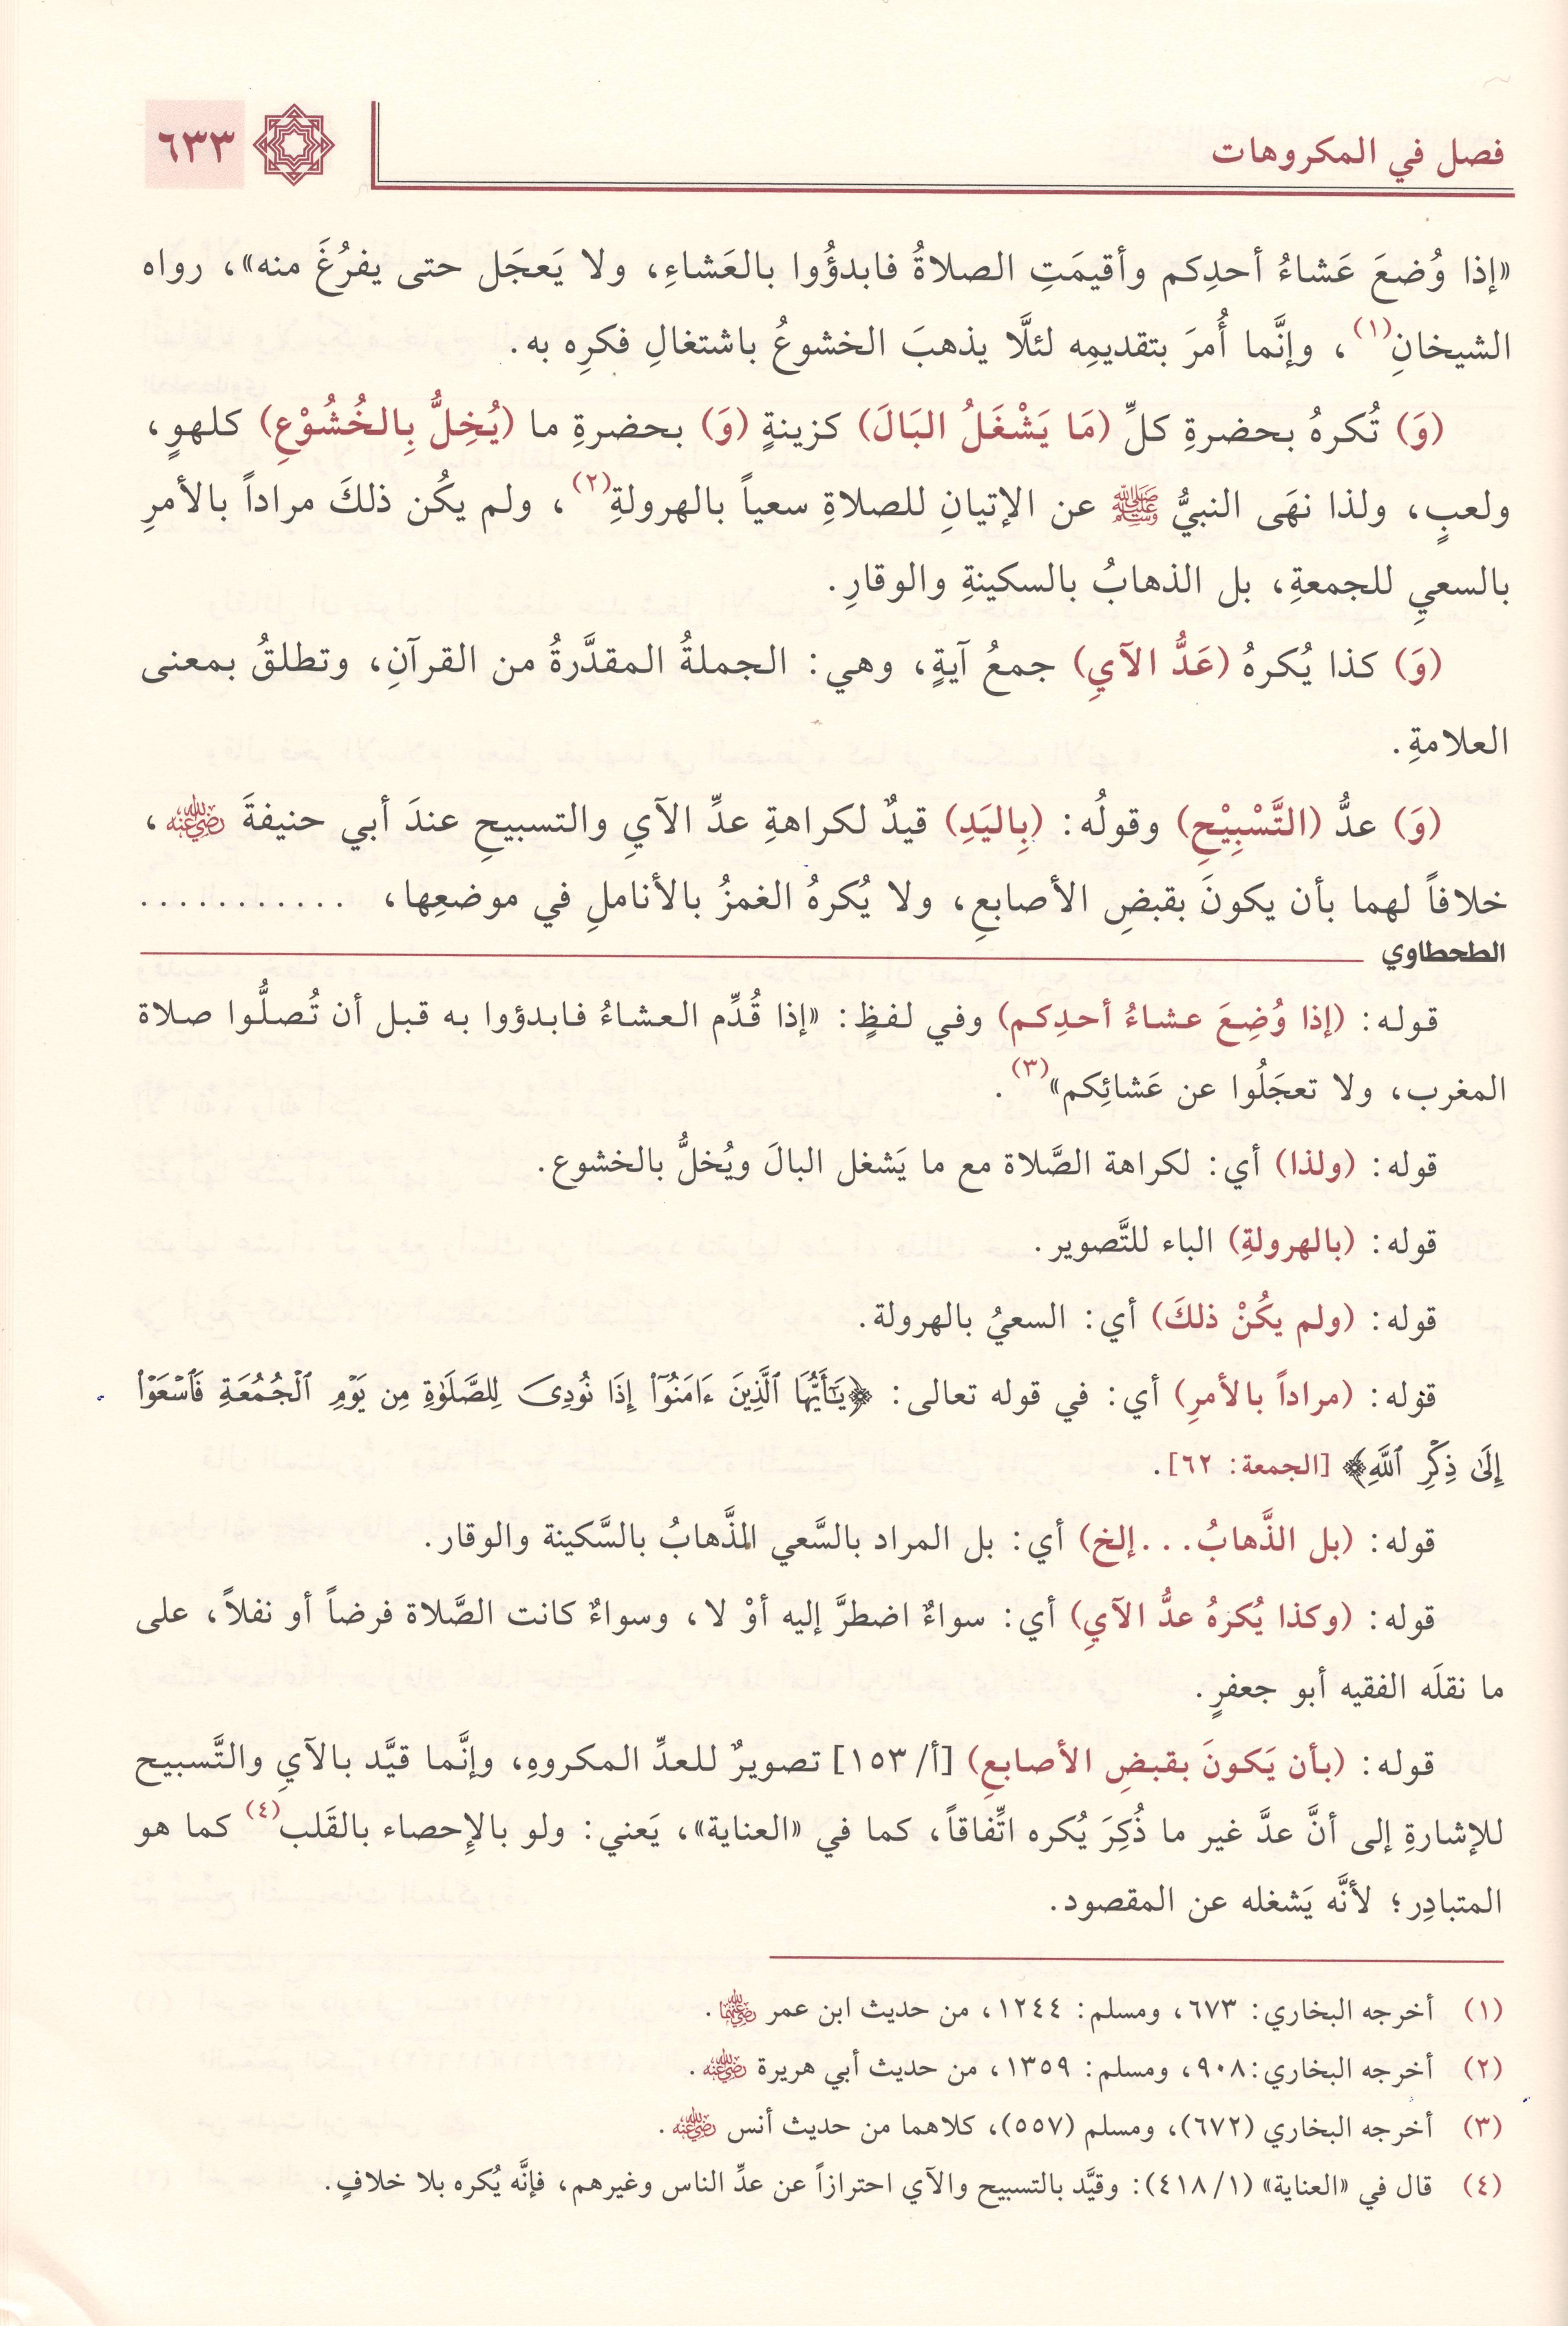 فصل في المكروهات ٦٣٣
«إذا وُضعَ عَشاءُ أحدِكم وأقيمَتِ الصلاةُ فابدؤُوا بالعَشاءِ، ولا يَعجَل حتى يفرُغَ منه»، رواه
الشيخانِ(١)، وإنَّما أُمرَ بتقديمِه لئلَّا يذهبَ الخشوعُ باشتغالِ فكرِه به.
(وَ) تُكرهُ بحضرةِ كلِّ (مَا يَشْغَلُ البَالَ) كزينةٍ (وَ) بحضرةِ ما (يُخِلُّ بِالخُشُوْعِ) كلهوٍ،
ولعبٍ، ولذا نهَى النبيُّ ﷺ عن الإتيانِ للصلاةِ سعياً بالهرولةِ(٢)، ولم يكُن ذلكَ مراداً بالأمرِ
بالسعيِ للجمعةِ، بل الذهابُ بالسكينةِ والوقارِ.
(وَ) كذا يُكرهُ (عَدُّ الآيِ) جمعُ آيةٍ، وهي: الجملةُ المقدَّرةُ من القرآنِ، وتطلقُ بمعنى
العلامةِ.
(وَ) عدُّ (التَّسْبِيْحِ) وقولُه: (بِاليَدِ) قيدٌ لكراهةِ عدِّ الآيِ والتسبيحِ عندَ أبي حنيفةَ رضي الله عنه،
خلافاً لهما بأن يكونَ بقبضِ الأصابعِ، ولا يُكرهُ الغمزُ بالأناملِ في موضعِها، ...........
الطحطاوي
قوله: (إذا وُضِعَ عشاءُ أحدِكم) وفي لفظٍ: «إذا قُدِّم العشاءُ فابدؤوا به قبل أن تُصلُّوا صلاة
المغرب، ولا تعجَلُوا عن عَشائِكم»(٣).
قوله: (ولذا) أي: لكراهة الصَّلاة مع ما يَشغل البالَ ويُخلُّ بالخشوع.
قوله: (بالهرولةِ) الباء للتَّصوير.
قوله: (ولم يكُنْ ذلكَ) أي: السعيُ بالهرولة.
قوله: (مراداً بالأمرِ) أي: في قوله تعالى: ﴿يَٰٓأَيُّهَا ٱلَّذِينَ ءَامَنُوٓا۟ إِذَا نُودِىَ لِلصَّلَوٰةِ مِن يَوْمِ ٱلْجُمُعَةِ فَٱسْعَوْا۟
إِلَىٰ ذِكْرِ ٱللَّهِ﴾ [الجمعة: ٦٢].
قوله: (بل الذَّهابُ...إلخ) أي: بل المراد بالسَّعي الذَّهابُ بالسَّكينة والوقار.
قوله: (وكذا يُكرَهُ عدُّ الآيِ) أي: سواءٌ اضطرَّ إليه أوْ لا، وسواءٌ كانت الصَّلاة فرضاً أو نفلاً، على
ما نقلَه الفقيه أبو جعفرٍ.
قوله: (بأن يَكونَ بقبضِ الأصابعِ) [أ/ ١٥٣] تصويرٌ للعدِّ المكروهِ، وإنَّما قيَّد بالآيِ والتَّسبيح
للإشارةِ إلى أنَّ عدَّ غير ما ذُكِرَ يُكره اتِّفاقاً، كما في «العناية»، يَعني: ولو بالإحصاء بالقَلب(٤) كما هو
المتبادِر؛ لأنَّه يَشغله عن المقصود.
(١) أخرجه البخاري: ٦٧٣، ومسلم: ١٢٤٤، من حديث ابن عمر رضي الله عنهما.
(٢) أخرجه البخاري:٩٠٨، ومسلم: ١٣٥٩، من حديث أبي هريرة رضي الله عنه.
(٣) أخرجه البخاري (٦٧٢)، ومسلم (٥٥٧)، كلاهما من حديث أنس رضي الله عنه.
(٤) قال في «العناية» (١/ ٤١٨): وقيَّد بالتسبيح والآي احترازاً عن عدِّ الناس وغيرهم، فإنَّه يُكره بلا خلافٍ.